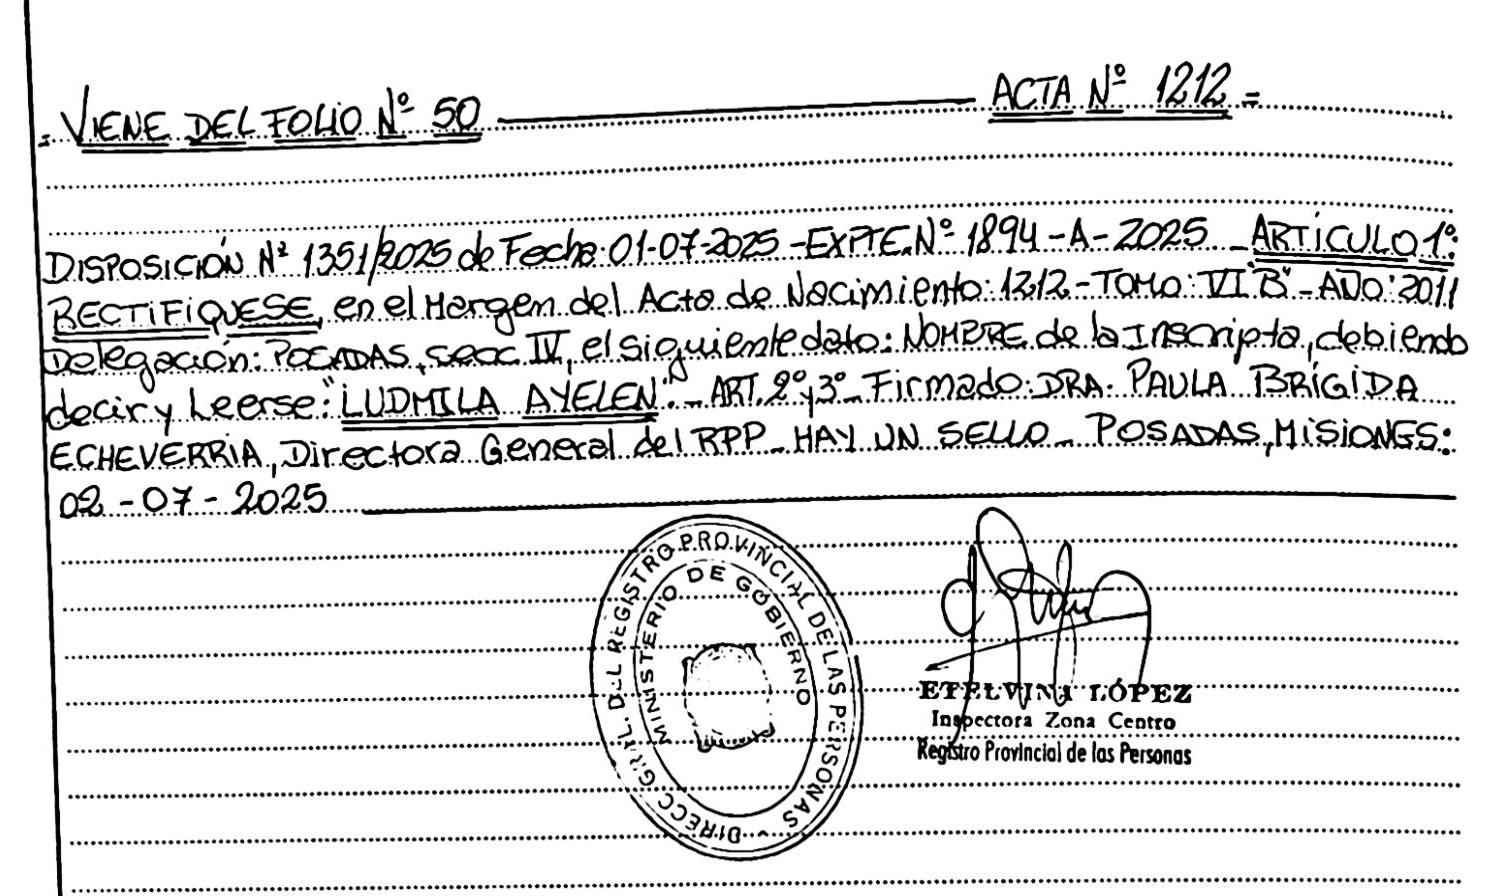 = VIENE DEL FOLIO Nº 50 ACTA Nº 1212 =
DISPOSICIÓN Nº 1351/2025 de Fecha: 01-07-2025 - EXPTE. Nº 1894 - A - 2025 - ARTÍCULO 1º:
RECTIFIQUESE, en el Margen del Acta de Nacimiento: 1212 - TOMO: VI "B" - AÑO: 2011
Delegación: POSADAS, secc IV, el siguiente dato: NOMBRE de la Inscripta, debiendo
decir y Leerse: "LUDMILA AYELEN". - ART. 2º y 3º - Firmado: DRA. PAULA BRÍGIDA
ECHEVERRIA, Directora General del RPP - HAY UN SELLO - POSADAS, MISIONES:
02 - 07 - 2025
DIRECC. GRAL. DEL REGISTRO PROVINCIAL DE LAS PERSONAS -
MINISTERIO DE GOBIERNO
ETELVINA LÓPEZ
Inspectora Zona Centro
Registro Provincial de las Personas